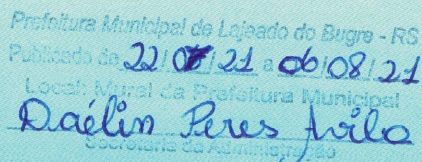 Prefeitura Municipal de Lajeado do Bugre - RS
Publicado de 22/07/21 a 06/08/21
Local: Mural da Prefeitura Municipal
Daélin Peres Avila
Secretaria da Administração